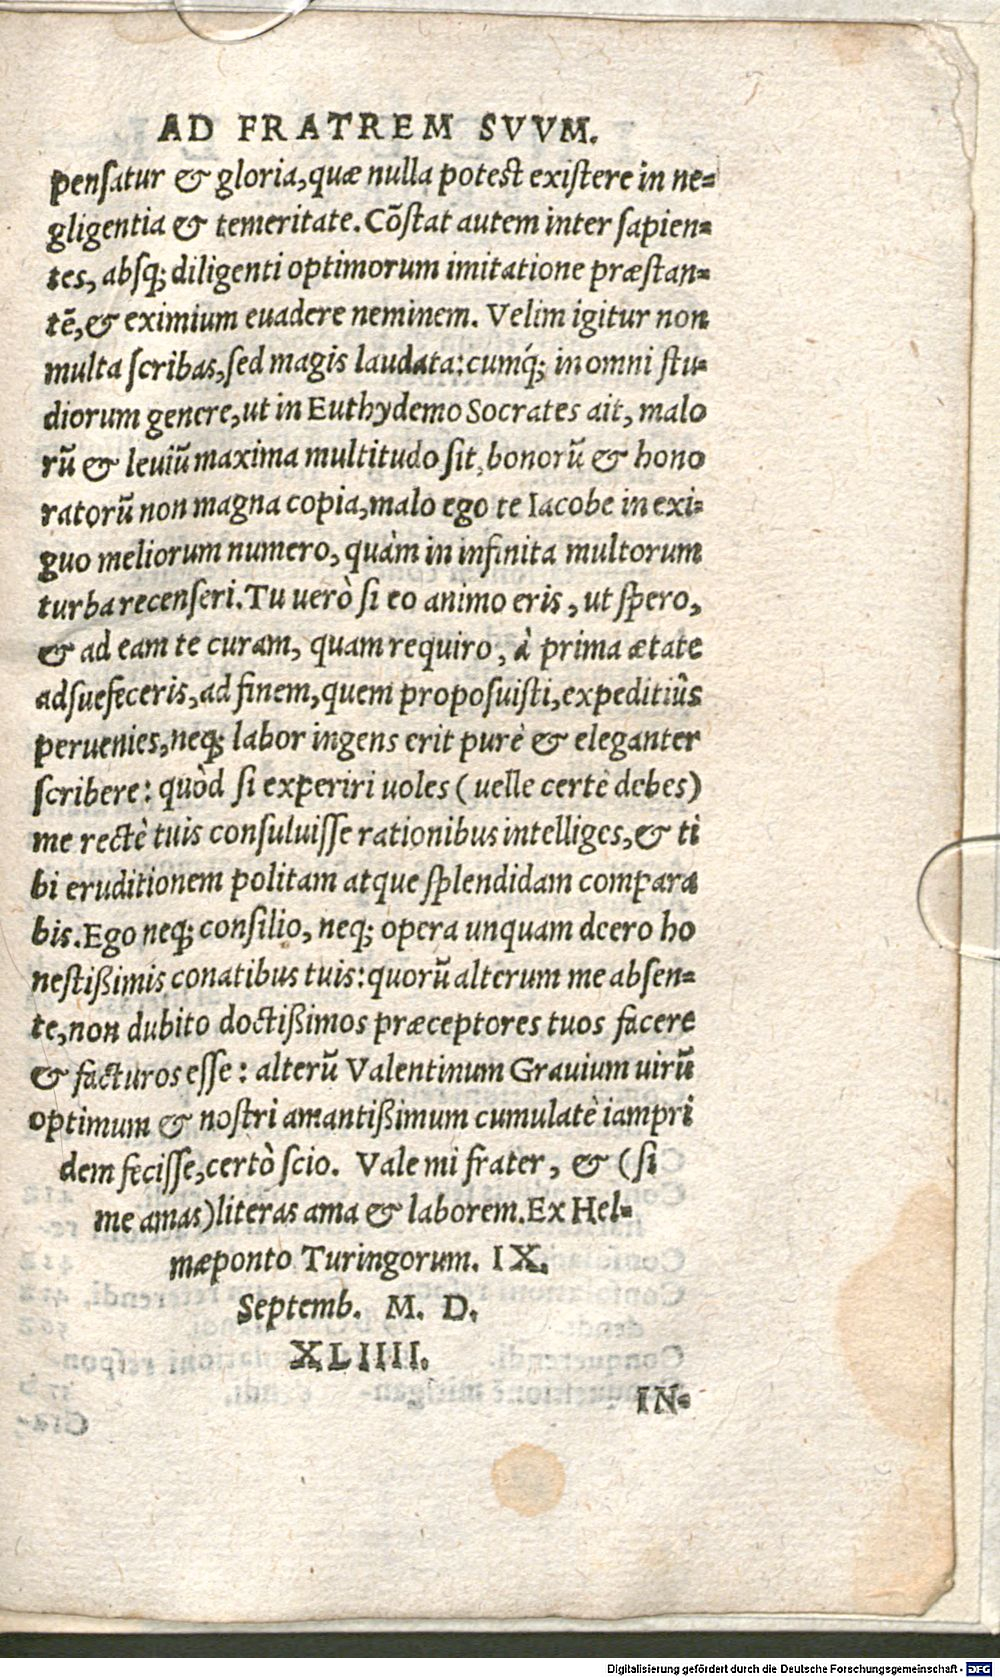 AD FRATREM SVVM.
pensatur & gloria, quæ nulla potest existere in ne-
gligentia & temeritate. Cõstat autem inter sapien-
tes, absq; diligenti optimorum imitatione præstan-
tẽ, & eximium euadere neminem. Velim igitur non
multa scribas, sed magis laudata: cumq́; in omni stu-
diorum genere, ut in Euthydemo Socrates ait, malo
rũ & leuiũ maxima multitudo sit, bonorũ & hono
ratorũ non magna copia, malo ego te Iacobe in exi-
guo meliorum numero, quàm in infinita multorum
turba recenseri. Tu uerò si eo animo eris, ut spero,
& ad eam te curam, quam requiro, à prima ætate
adsuefeceris, ad finem, quem proposuisti, expeditiûs
peruenies, neq; labor ingens erit purè & eleganter
scribere: quòd si experiri uoles (uelle certè debes)
me rectè tuis consuluisse rationibus intelliges, & ti
bi eruditionem politam atque splendidam compara
bis. Ego neq; consilio, neq; opera unquam deero ho
nestißimis conatibus tuis: quorũ alterum me absen-
te, non dubito doctißimos præceptores tuos facere
& facturos esse: alterũ Valentinum Grauium uirũ
optimum & nostri amantißimum cumulatè iampri
dem fecisse, certò scio. Vale mi frater, & (si
me amas) literas ama & laborem. Ex Hel-
mæponto Turingorum. IX.
Septemb. M. D.
XLIIII.
IN-
Digitalisierung gefördert durch die Deutsche Forschungsgemeinschaft - DFG